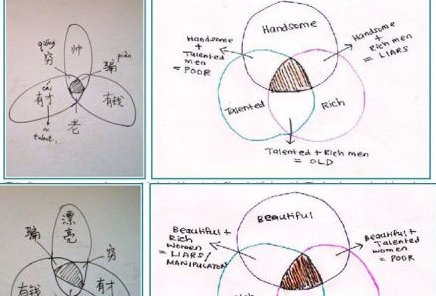 qióng
穷
帅
骗
piàn
有才
cái
有钱
老
talent.
Handsome
Handsome
+
Talented
men
= POOR
Handsome
+
Rich men
= LIARS
Talented
Rich
Talented + Rich men
= OLD
漂
亮
骗
穷
有钱
有才
BEAUTIFUL
Beautiful +
Rich
Women
= LIARS/
MANIPULATORS
Beautiful +
Talented
women
= POOR